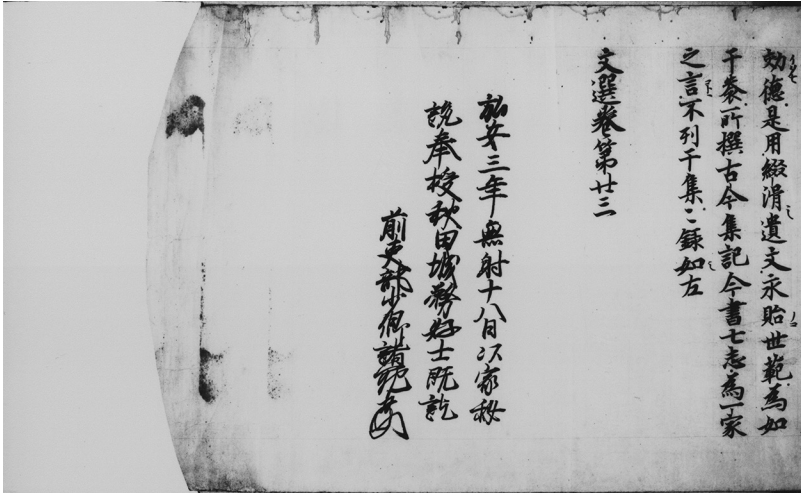 効德是用綴滑遺文永貽世範為如
干袠所撰古今集記今書七志為一家
之言不列于集〻錄如左
文選卷第廿三
弘安三年無射十八日以家秘
說奉授秋田城務好士既訖
前吏部少卿諸範